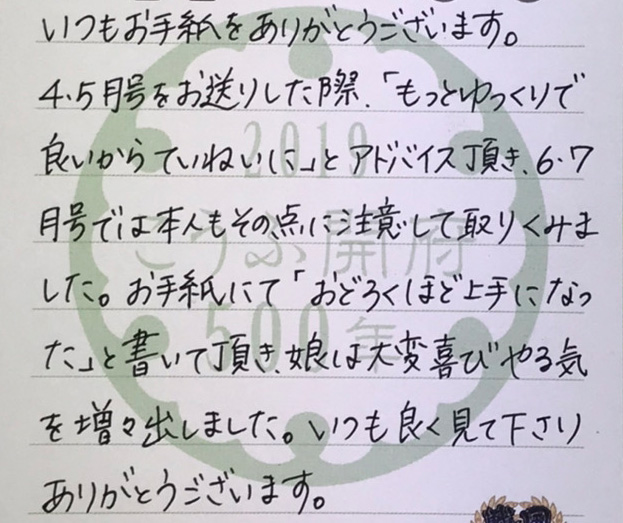 いつもお手紙をありがとうございます。
4・5月号をお送りした際、「もっとゆっくりで
良いからていねいに」とアドバイス頂き、6・7
月号では本人もその点に注意して取りくみま
した。お手紙にて「おどろくほど上手になっ
た」と書いて頂き、娘は大変喜びやる気
を増々出しました。いつも良く見て下さり
ありがとうございます。
2019
こうふ開府
500年